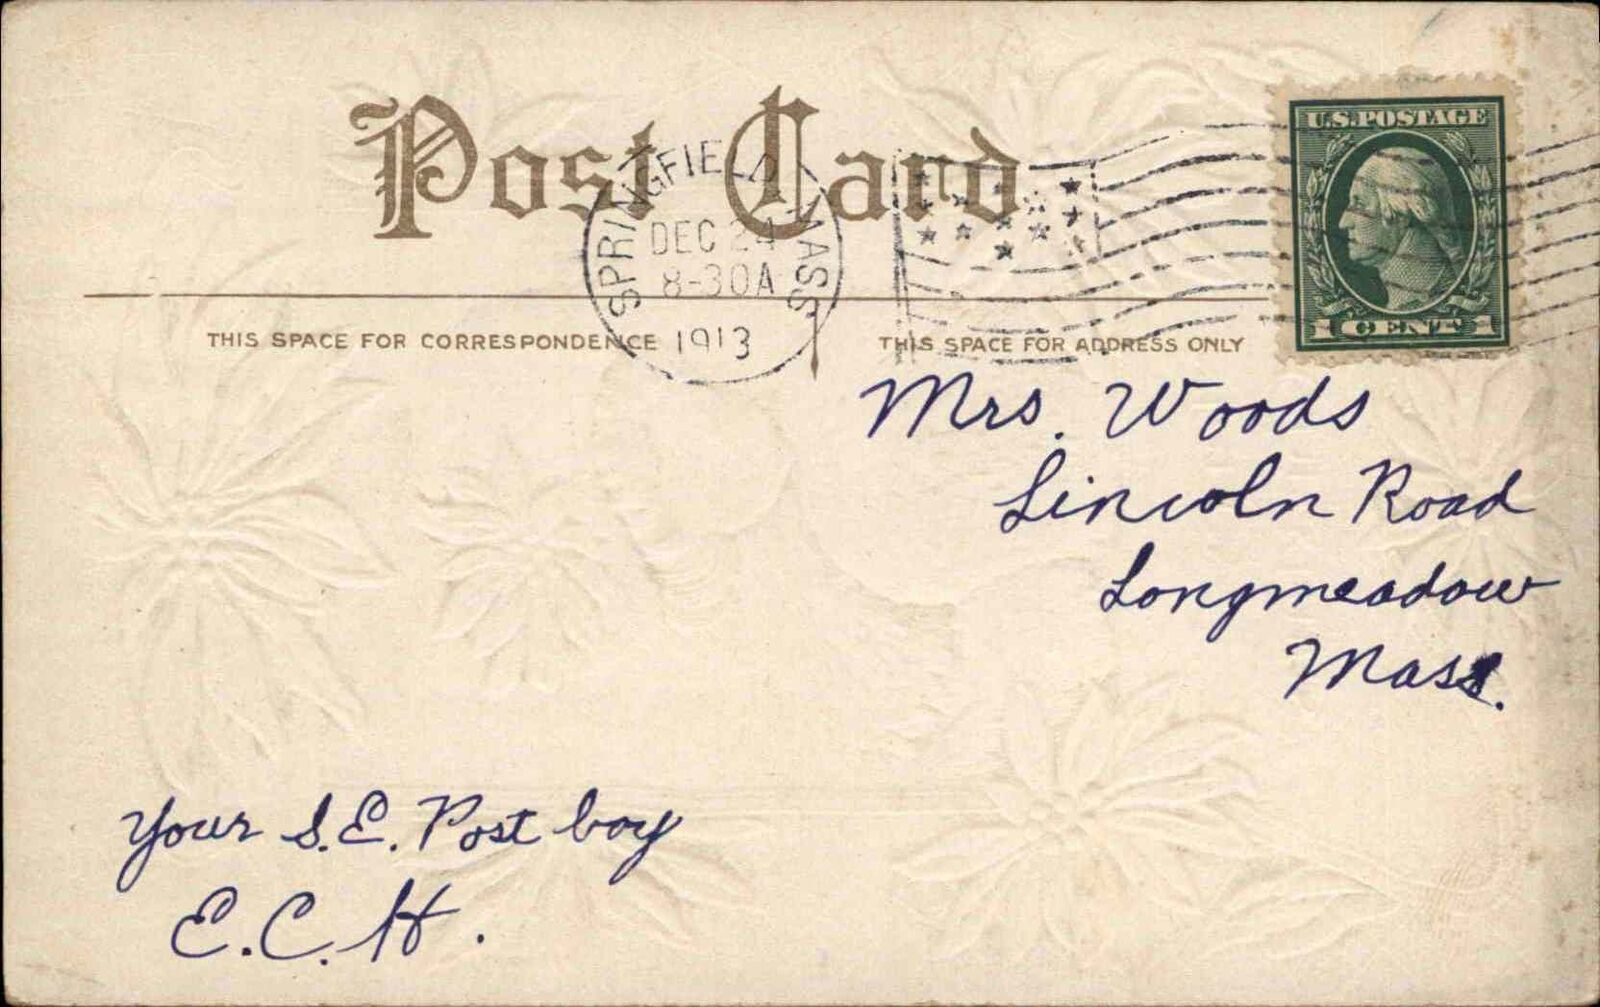 Post Card
SPRINGFIELD, MASS.
DEC 24
8-30A
1913
U.S. POSTAGE
1 CENT 1
THIS SPACE FOR CORRESPONDENCE
THIS SPACE FOR ADDRESS ONLY
Mrs. Woods
Lincoln Road
Longmeadow
Mass.
Your S.E. Post boy
E.C.H.